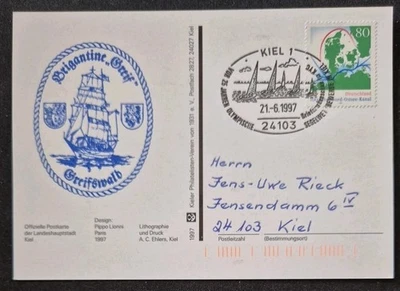 Brigantine „Greif"
Greifswald
Offizielle Postkarte
der Landeshauptstadt
Kiel
Design:
Pippo Lionni
Paris
1997
Lithographie
und Druck
A. C. Ehlers, Kiel
1997
Kieler Philatelisten-Verein von 1931 e. V., Postfach 2827, 24027 Kiel
KIEL 1
VOR 25 JAHREN OLYMPISCHE
21.-6.1997
24103
80
Deutschland
Herrn
Jens-Uwe Rieck
Jensendamm 6 IV
24103 Kiel
Postleitzahl (Bestimmungsort)